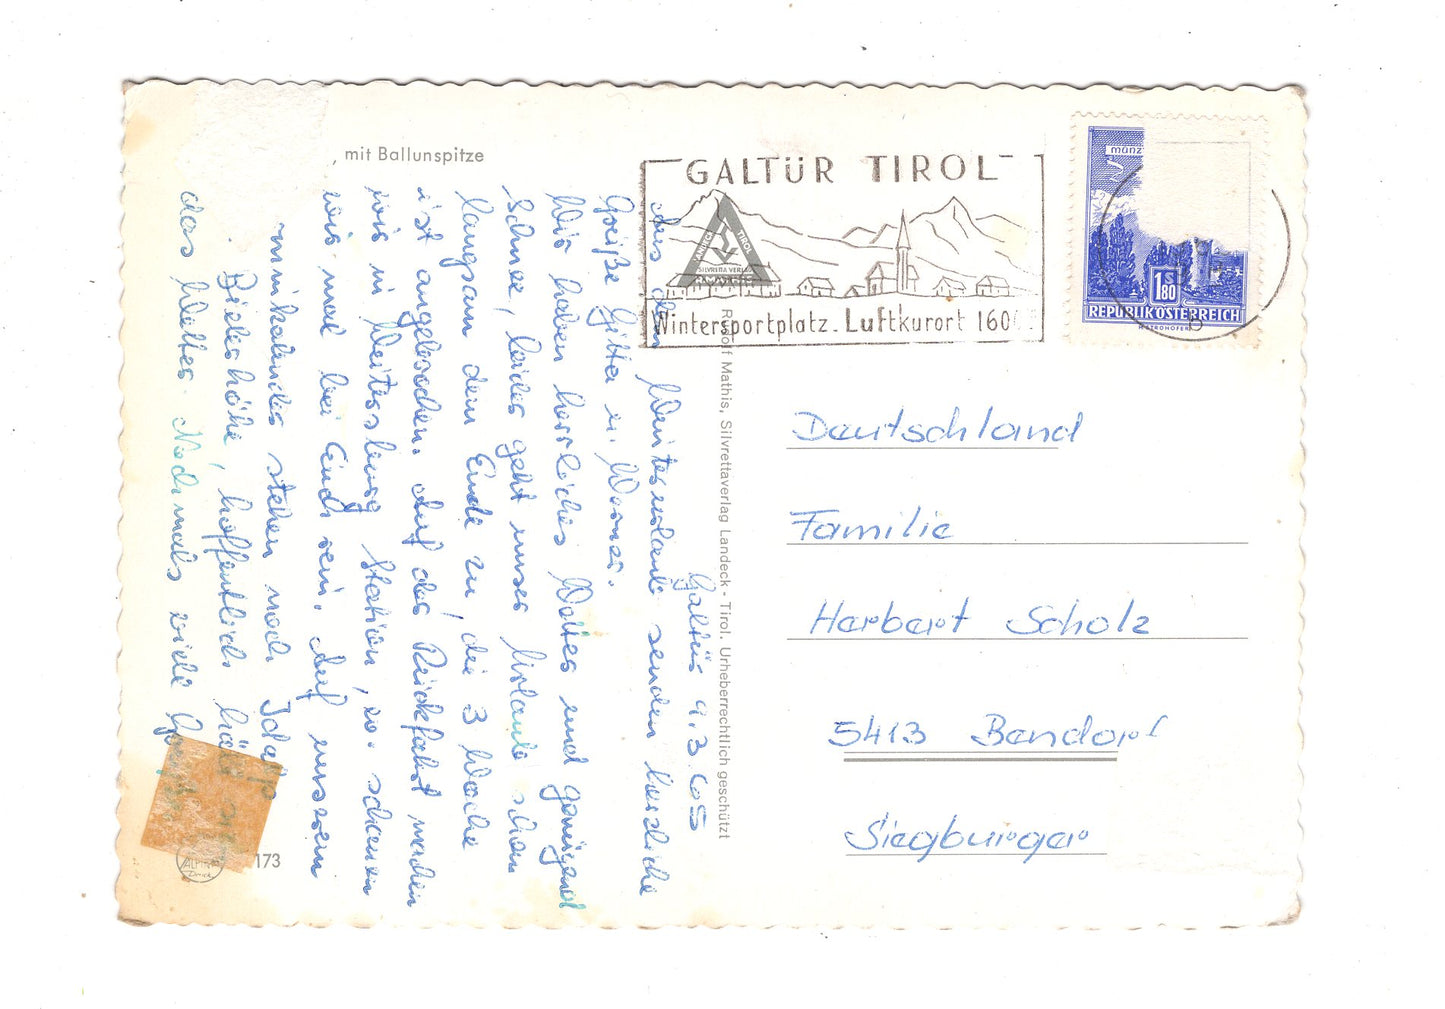 , mit Ballunspitze
GALTÜR TIROL
TIROL
SILVRETTA VERLAG
Wintersportplatz - Luftkurort 160
münz
S
1.80
REPUBLIK ÖSTERREICH
b
Rudolf Mathis, Silvrettaverlag Landeck - Tirol. Urheberrechtlich geschützt
Galtür 9.3.65
Aus dem Winterurlaub senden herzliche
Grüße Gitta u. Werner.
Wir haben herrliches Wetter und genügend
Schnee, leider geht unser Urlaub schon
langsam dem Ende zu, die 3 Woche
ist angebrochen. Auf der Rückfahrt machen
wir in Station, so schauen
wir mal bei Euch rein. Auf unserm
miteinander stehen noch Ischgl
Bielerhöhe, hoffentlich hält
das Wetter. Nochmals viele
173
Deutschland
Familie
Herbert Scholz
5413 Bendorf
Siegburger